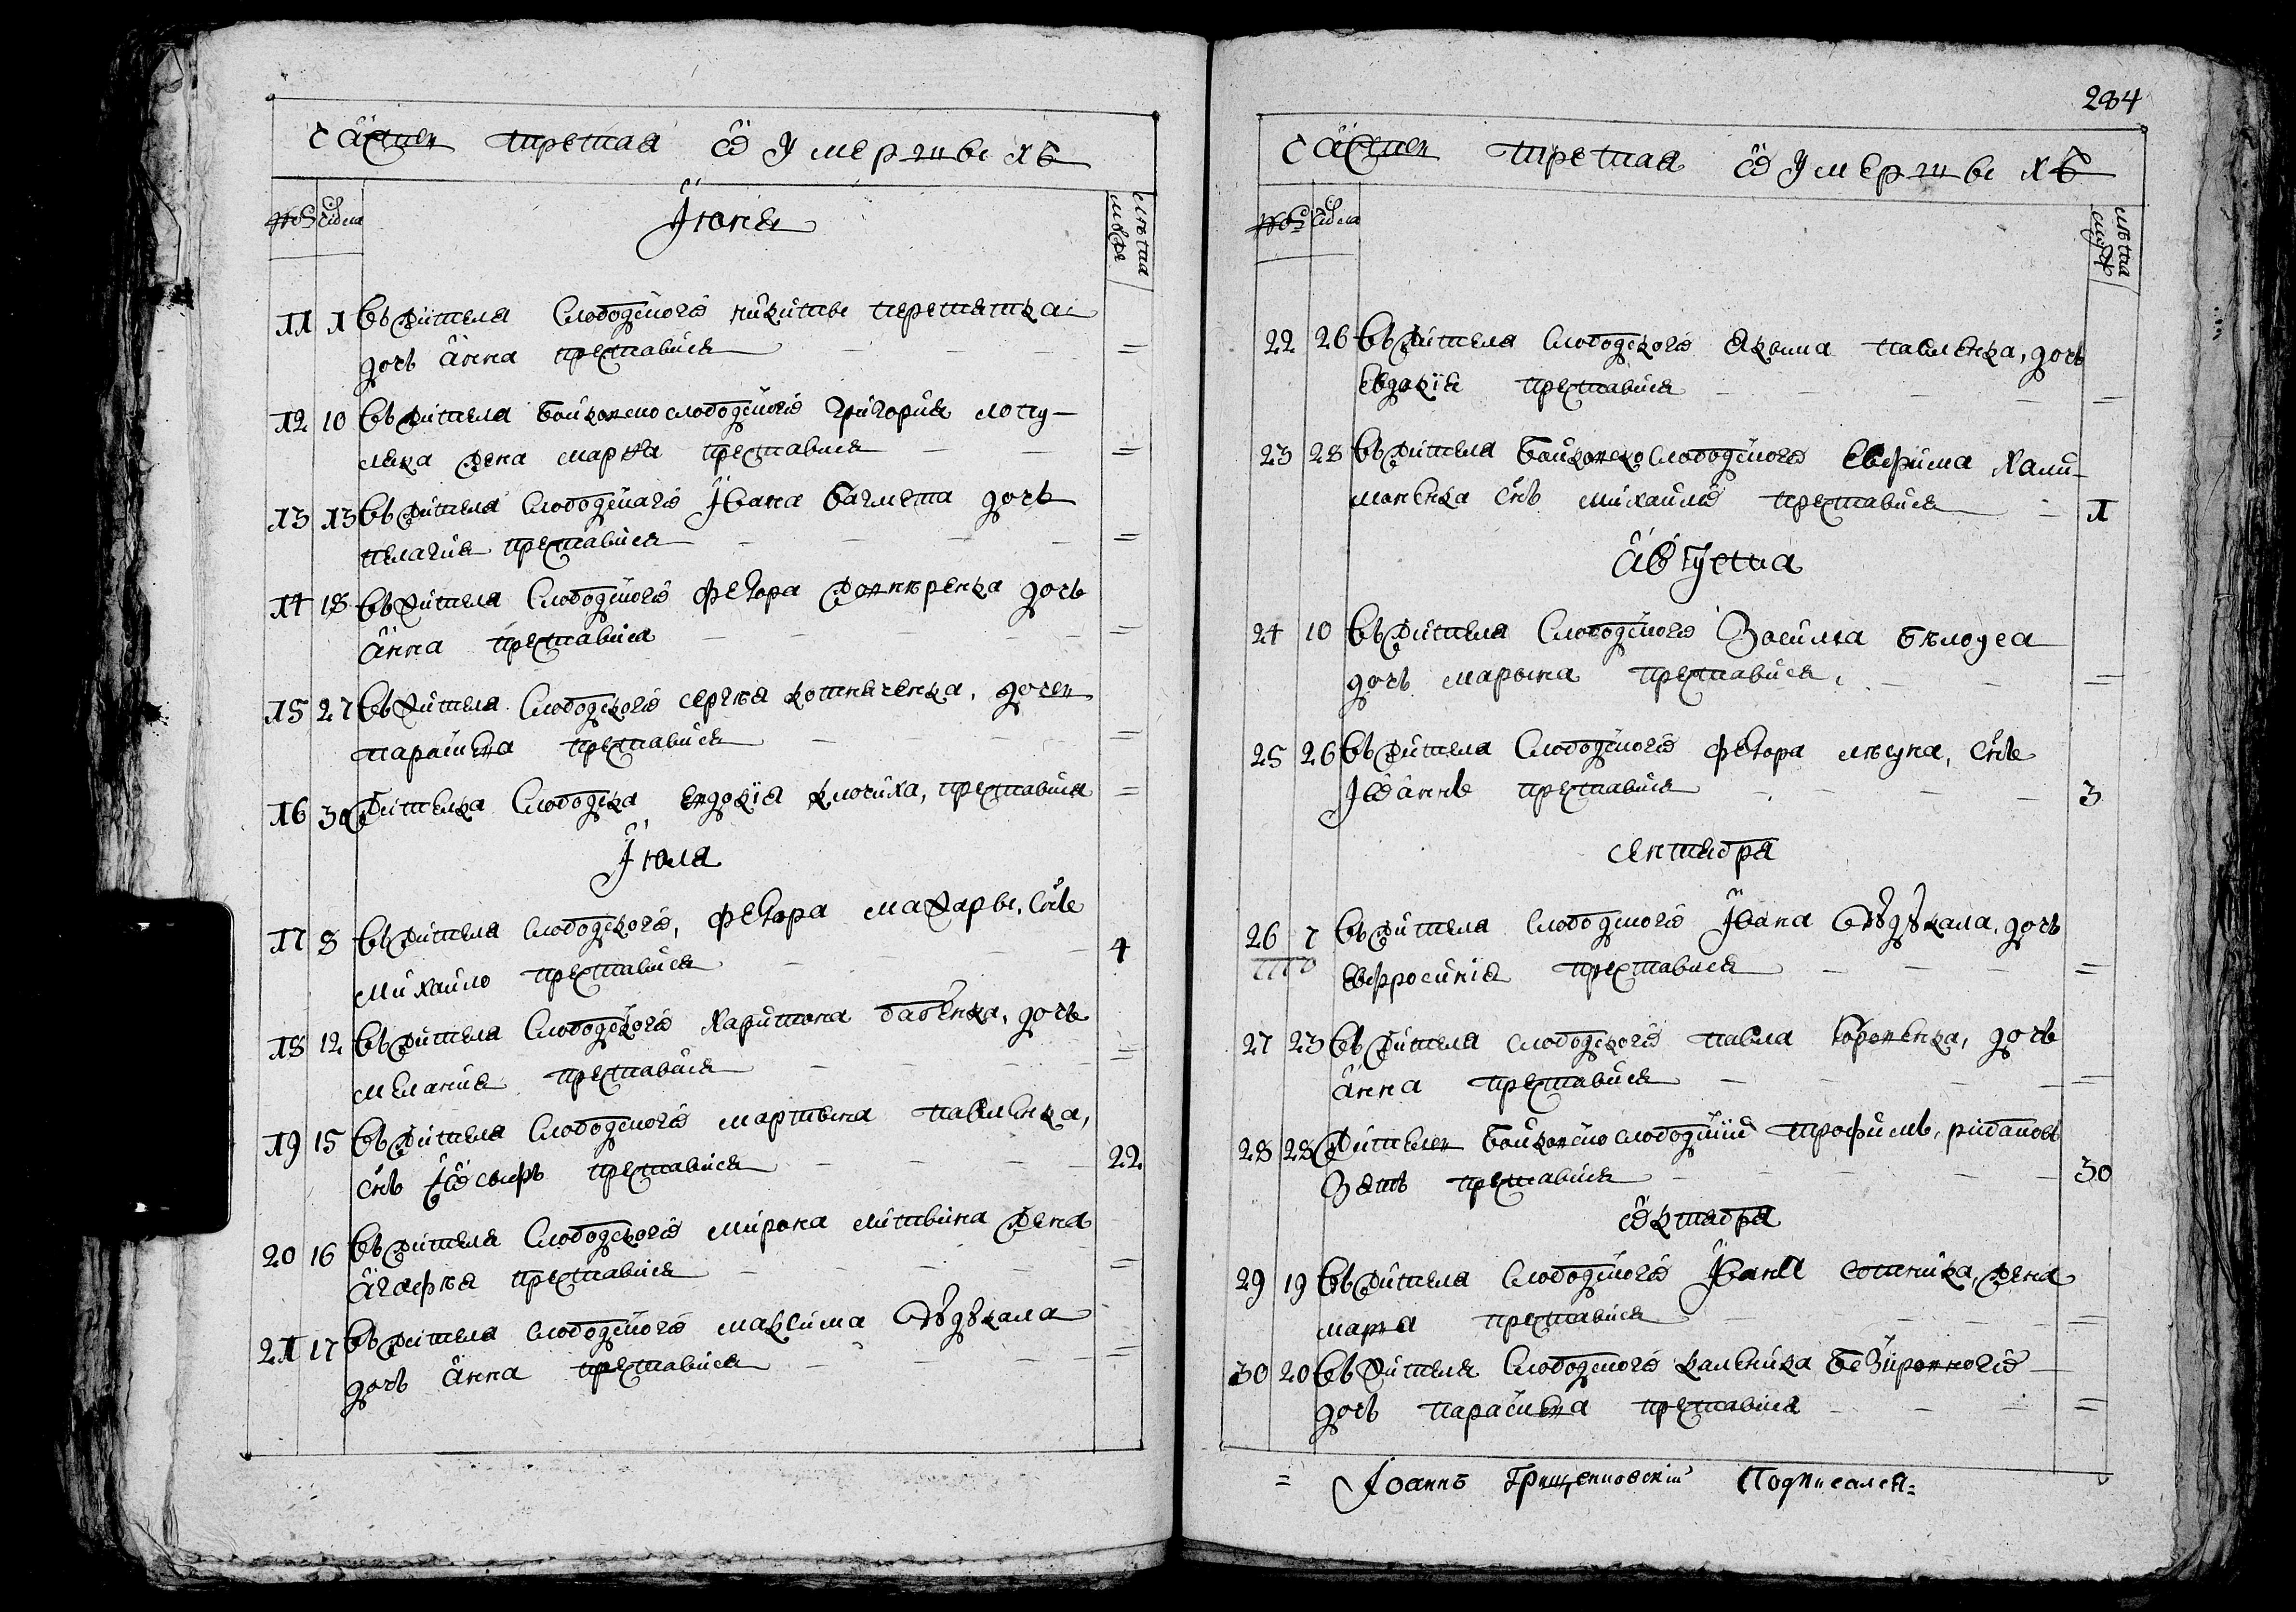 Части третая ѿ умерших
№ числа
Іюня
лѣта муже
11 1 въ жителя Слободского никиты перетятка
дочь анна преставися =
12 10 въ жителя бойковско слободского григория лопу-
лека жена марѳа преставися =
13 13 въ жителя Слободского Івана багмета дочь
пелагия преставися =
14 18 въ жителя Слободского феѡдора
дочь
анна преставися =
15 27 въ жителя Слободского сергѣя котляченка, дочь
параскева преставися =
16 30 жителка Слободска евдокия ключиха, преставися =
Іюля
17 8 въ жителя слободского, феѡдора махары, снъ
михайло преставися 4
18 12 въ жителя Слободского харитона бабенка, дочь
мелания преставися =
19 15 въ жителя Слободского мартына павленка,
снъ Іѡсифъ преставися 22
20 16 въ жителя Слободского мирона литвина жена
агафѣя преставися =
21 17 въ жителя слободского максима дѣдѣкала
дочь анна преставися =
284
Части третая ѿ умерших
№ числа
лѣта
22 26 въ жителя слободского якима павленка, дочь
евдокія преставися =
23 28 въ жителя бойковско слободского евфима хали-
моненка снъ михайло преставися 1
августа
24 10 въ жителя Слободского Зосимка бѣлоуса
дочь марына преставися =
25 26 въ жителя Слободского феѡдора лѣсуна, снъ
Іѡаннъ преставися 3
септября
26 7 въ жителя слободского Івана дѣдѣкала, дочь
евфросинія преставися =
27 23 въ жителя слободского павла
дочь
анна преставися =
28 28 житель бойковско слободский трофимъ, рибановъ
Зять преставися 30
ѡктября
29 19 въ жителя слободского Івана сотника, жена
марѳа преставися =
30 20 въ жителя Слободского каленика безкровного
дочь параскева преставися =
= Іоаннъ Грищенковскій Подписался =